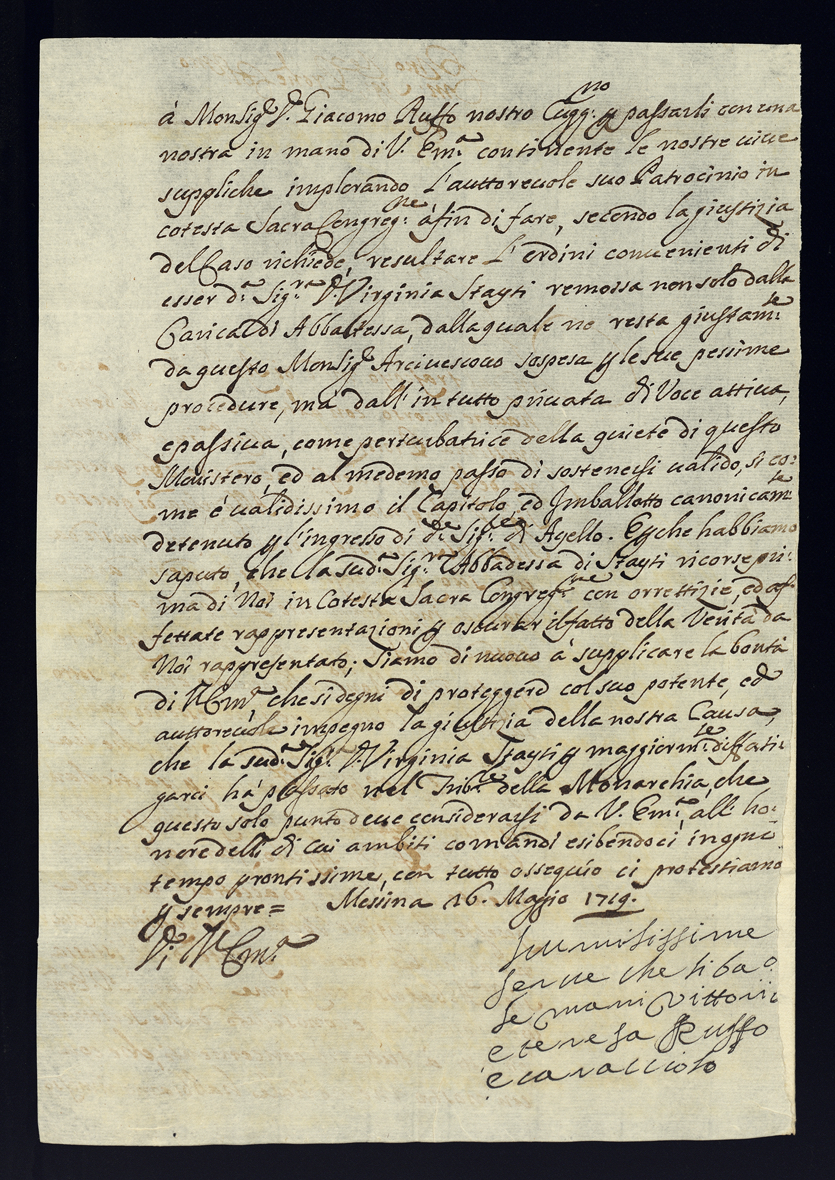 à Monsig.r D. Giacomo Ruffo nostro Cugg.no p passarli con una
nostra in mano di V. Em.a continente le nostre vive
suppliche implorando l'auttorevole suo Patrocinio in
cotesta Sacra Congreg.ne à fin di fare, secondo la giustizia
del Caso richiede, resultare l'ordini convenienti di
esser d.a Sig.ra D. Virginia Stayti remossa non solo dalla
Carica di Abbatessa, dalla quale ne resta giustam.te
da questo Monsig.r Arcivescovo sospesa p le sue pessime
procedure, mà dall'intutto privata di Voce attiva,
e passiva, come perturbatrice della quiete di questo
Monistero, ed al medemo passo di sostenersi valido, si co:
me è validissimo il Capitolo, ed Imballotto canonicam.te
detenuto p l'ingresso di d.e Sig.re di Agello. E p che habbiamo
saputo, che la sud.a Sig.ra Abbadessa di Stayti ricorse pri:
ma di Noi in Cotesta Sacra Congreg.ne con orrettizie, ed af
fettate rappresentazioni p oscurar il fatto della Verità da
Noi rappresentato; Siamo di nuovo à supplicare la bontà
di V. Em.a che si degni di proteggere col suo potente, ed
auttorevole impegno la giustizia della nostra Causa,
che la sud.a Sig.ra D. Virginia Stayti p maggiorm.te diffati:
garci hà passato nel Trib.le della Monarchia, che
questo solo punto deve considerarsi da V. Em.a all' ho:
nore delli di cui ambiti comandi esibendoci in ogni
tempo prontissime, con tutto ossequio ci protestiamo
p sempre = Messina 16. Maggio 1719.
Di V. Em.a
humilissime
serve che li bacia
le mani Vittoria
e teresa Ruffo
e caracciolo